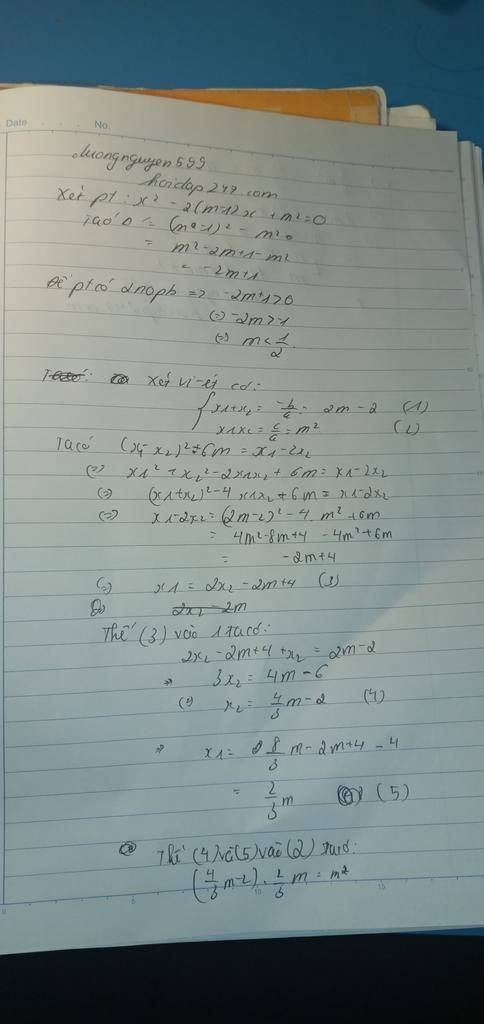 Date No.
duongnguyen699
hoidap247.com
Xét pt: x² - 2(m-1)x + m² = 0
Ta có Δ' = (m-1)² - m²
= m² - 2m + 1 - m²
= -2m + 1
Để pt có 2nopb => -2m + 1 > 0
(=) -2m > -1
(=) m < 1/2
Xét vi-ét có:
{ x1 + x2 = -b/a = 2m - 2 (1)
x1x2 = c/a = m² (2)
Ta có (x1 - x2)² + 6m = x1 - 2x2
(=) x1² + x2² - 2x1x2 + 6m = x1 - 2x2
(=) (x1 + x2)² - 4x1x2 + 6m = x1 - 2x2
(=) x1 - 2x2 = (2m - 2)² - 4.m² + 6m
= 4m² - 8m + 4 - 4m² + 6m
= -2m + 4
(=) x1 = 2x2 - 2m + 4 (3)
2x2 - 2m
Thế (3) vào 1 ta có:
2x2 - 2m + 4 + x2 = 2m - 2
=> 3x2 = 4m - 6
(=) x2 = 4/3 m - 2 (4)
=> x1 = 8/3 m - 2m + 4 - 4
= 2/3 m (5)
Thế (4) và (5) vào (2) ta có:
(4/3 m - 2) . 2/3 m = m²
5 10 15